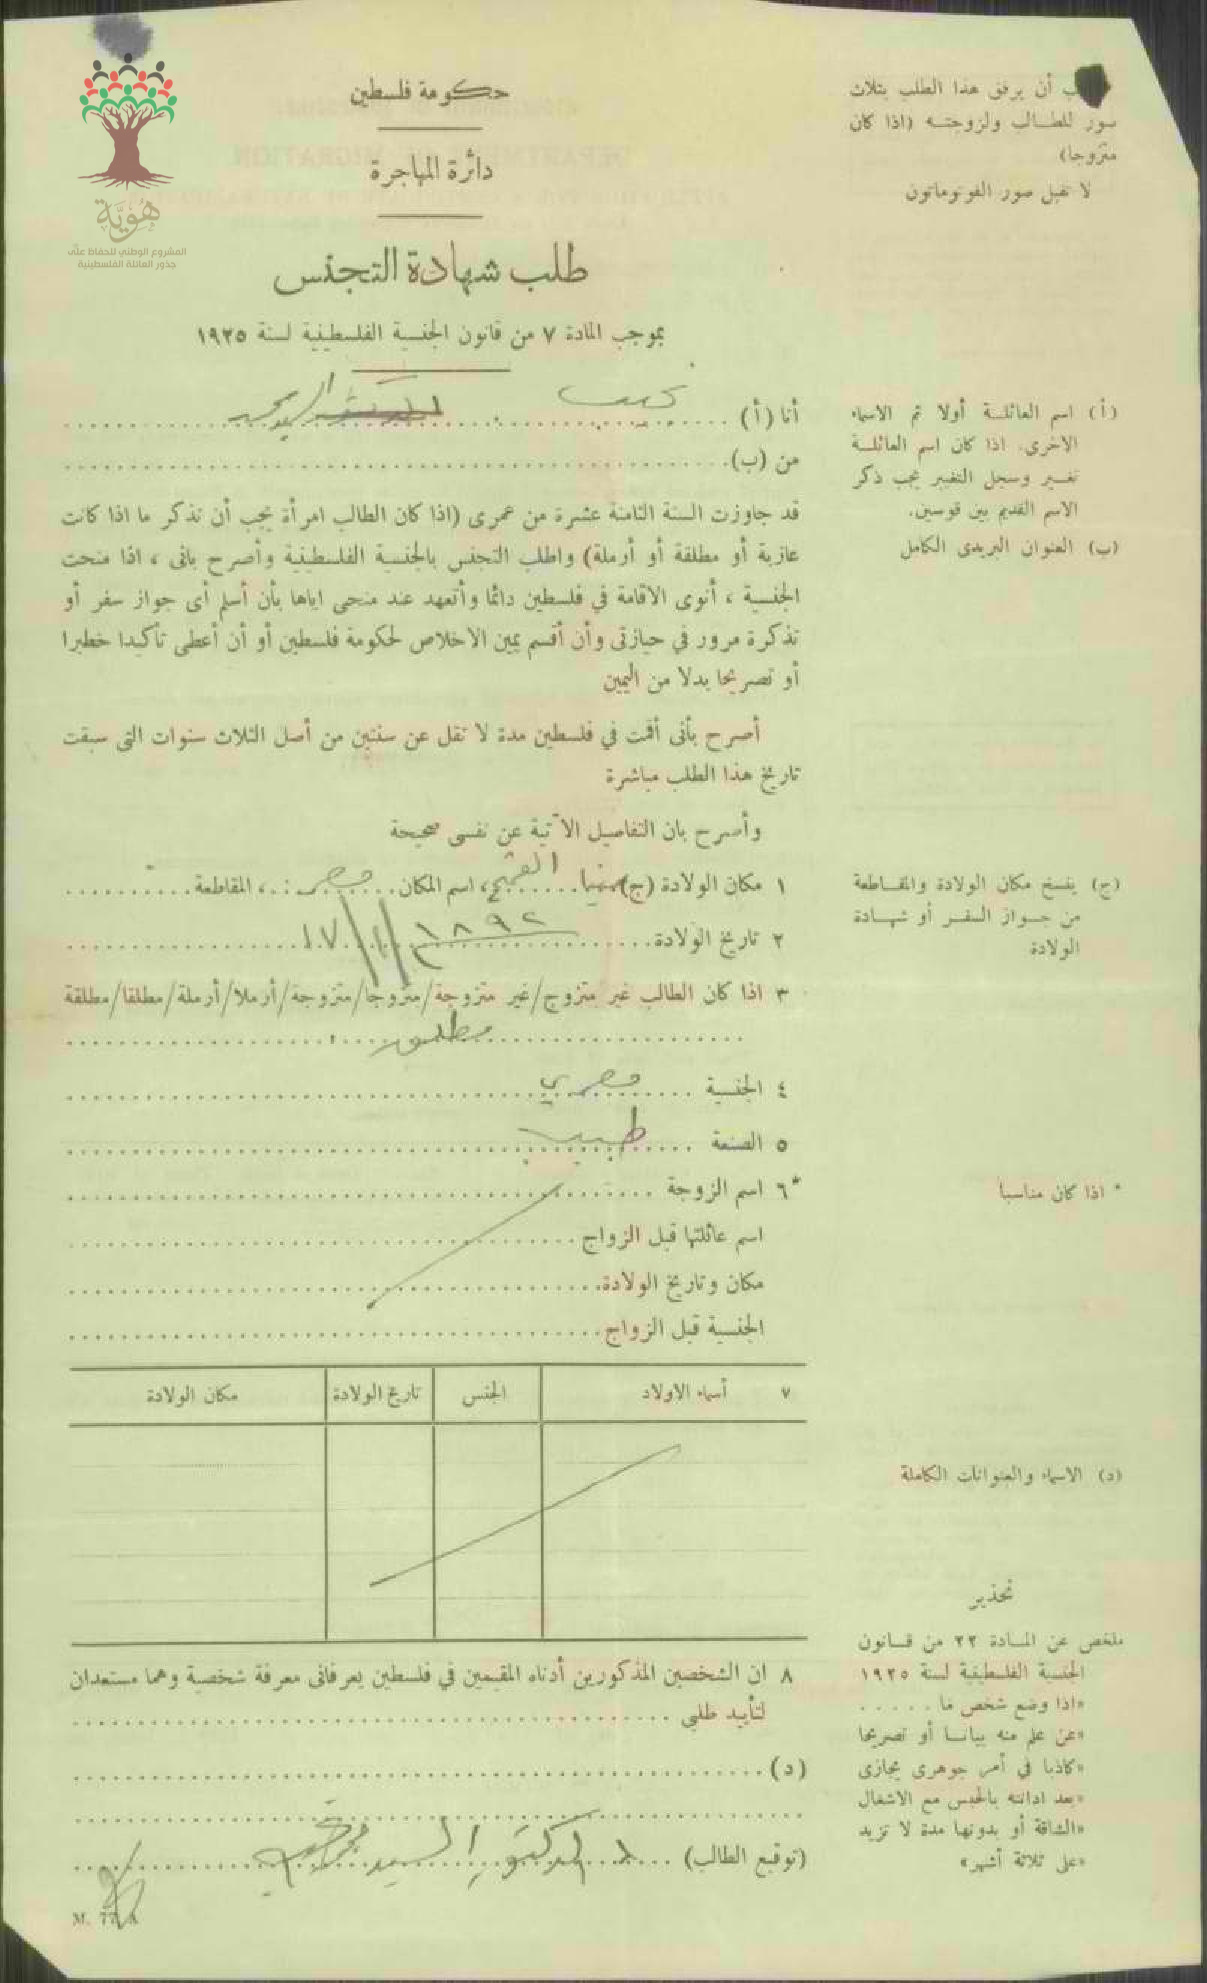 هُوِيَّة
المشروع الوطني للحفاظ على
جذور العائلة الفلسطينية
حكومة فلسطين
دائرة المهاجرة
طلب شهادة التجنس
بموجب المادة ٧ من قانون الجنسية الفلسطينية لسنة ١٩٢٥
أن يرفق هذا الطلب بثلاث
صور للطالب ولزوجته (اذا كان
متزوجا)
لا تقبل صور الفوتوماتون
أنا (أ) نجيب السيد محمد
من (ب)
(أ) اسم العائلة أولا ثم الاسماء
الاخرى. اذا كان اسم العائلة
تغير وسجل التغيير يجب ذكر
الاسم القديم بين قوسين.
(ب) العنوان البريدى الكامل
قد جاوزت السنة الثامنة عشرة من عمرى (اذا كان الطالب امرأة يجب أن تذكر ما اذا كانت
عازبة أو مطلقة أو أرملة) واطلب التجنس بالجنسية الفلسطينية وأصرح بانى ، اذا منحت
الجنسية ، أنوى الاقامة في فلسطين دائما وأتعهد عند منحى اياها بأن أسلم أى جواز سفر أو
تذكرة مرور في حيازتى وأن أقسم يمين الاخلاص لحكومة فلسطين أو أن أعطى تأكيدا خطيرا
أو تصريحا بدلا من اليمين
أصرح بأنى أقمت في فلسطين مدة لا تقل عن سنتين من أصل الثلاث سنوات التى سبقت
تاريخ هذا الطلب مباشرة
وأصرح بان التفاصيل الآتية عن نفسى صحيحة
١ مكان الولادة (ج) منيا القمح، اسم المكان مصر، المقاطعة
٢ تاريخ الولادة ١٨٩٢
(ج) ينسخ مكان الولادة والمقاطعة
من جواز السفر أو شهادة
الولادة
٣ اذا كان الطالب غير متزوج/غير متزوجة/متزوجا/متزوجة/أرملا/أرملة/مطلقا/مطلقة
مطلق
٤ الجنسية مصري
٥ الصنعة طبيب
*٦ اسم الزوجة
* اذا كان مناسبا
اسم عائلتها قبل الزواج
مكان وتاريخ الولادة
الجنسية قبل الزواج
٧ أسماء الاولاد الجنس تاريخ الولادة مكان الولادة
(د) الاسماء والعنوانات الكاملة
تحذير
ملخص عن المادة ٢٢ من قانون
الجنسية الفلسطينية لسنة ١٩٢٥
«اذا وضع شخص ما
«عن علم منه بيانا أو تصريحا
«كاذبا في أمر جوهرى يجازى
«بعد ادانته بالحبس مع الاشغال
«الشاقة أو بدونها مدة لا تزيد
«على ثلاثة أشهر»
٨ ان الشخصين المذكورين أدناه المقيمين في فلسطين يعرفانى معرفة شخصية وهما مستعدان
لتأييد طلبى
(د)
(توقيع الطالب) الدكتور السيد محمد نجيب
M. 77 A